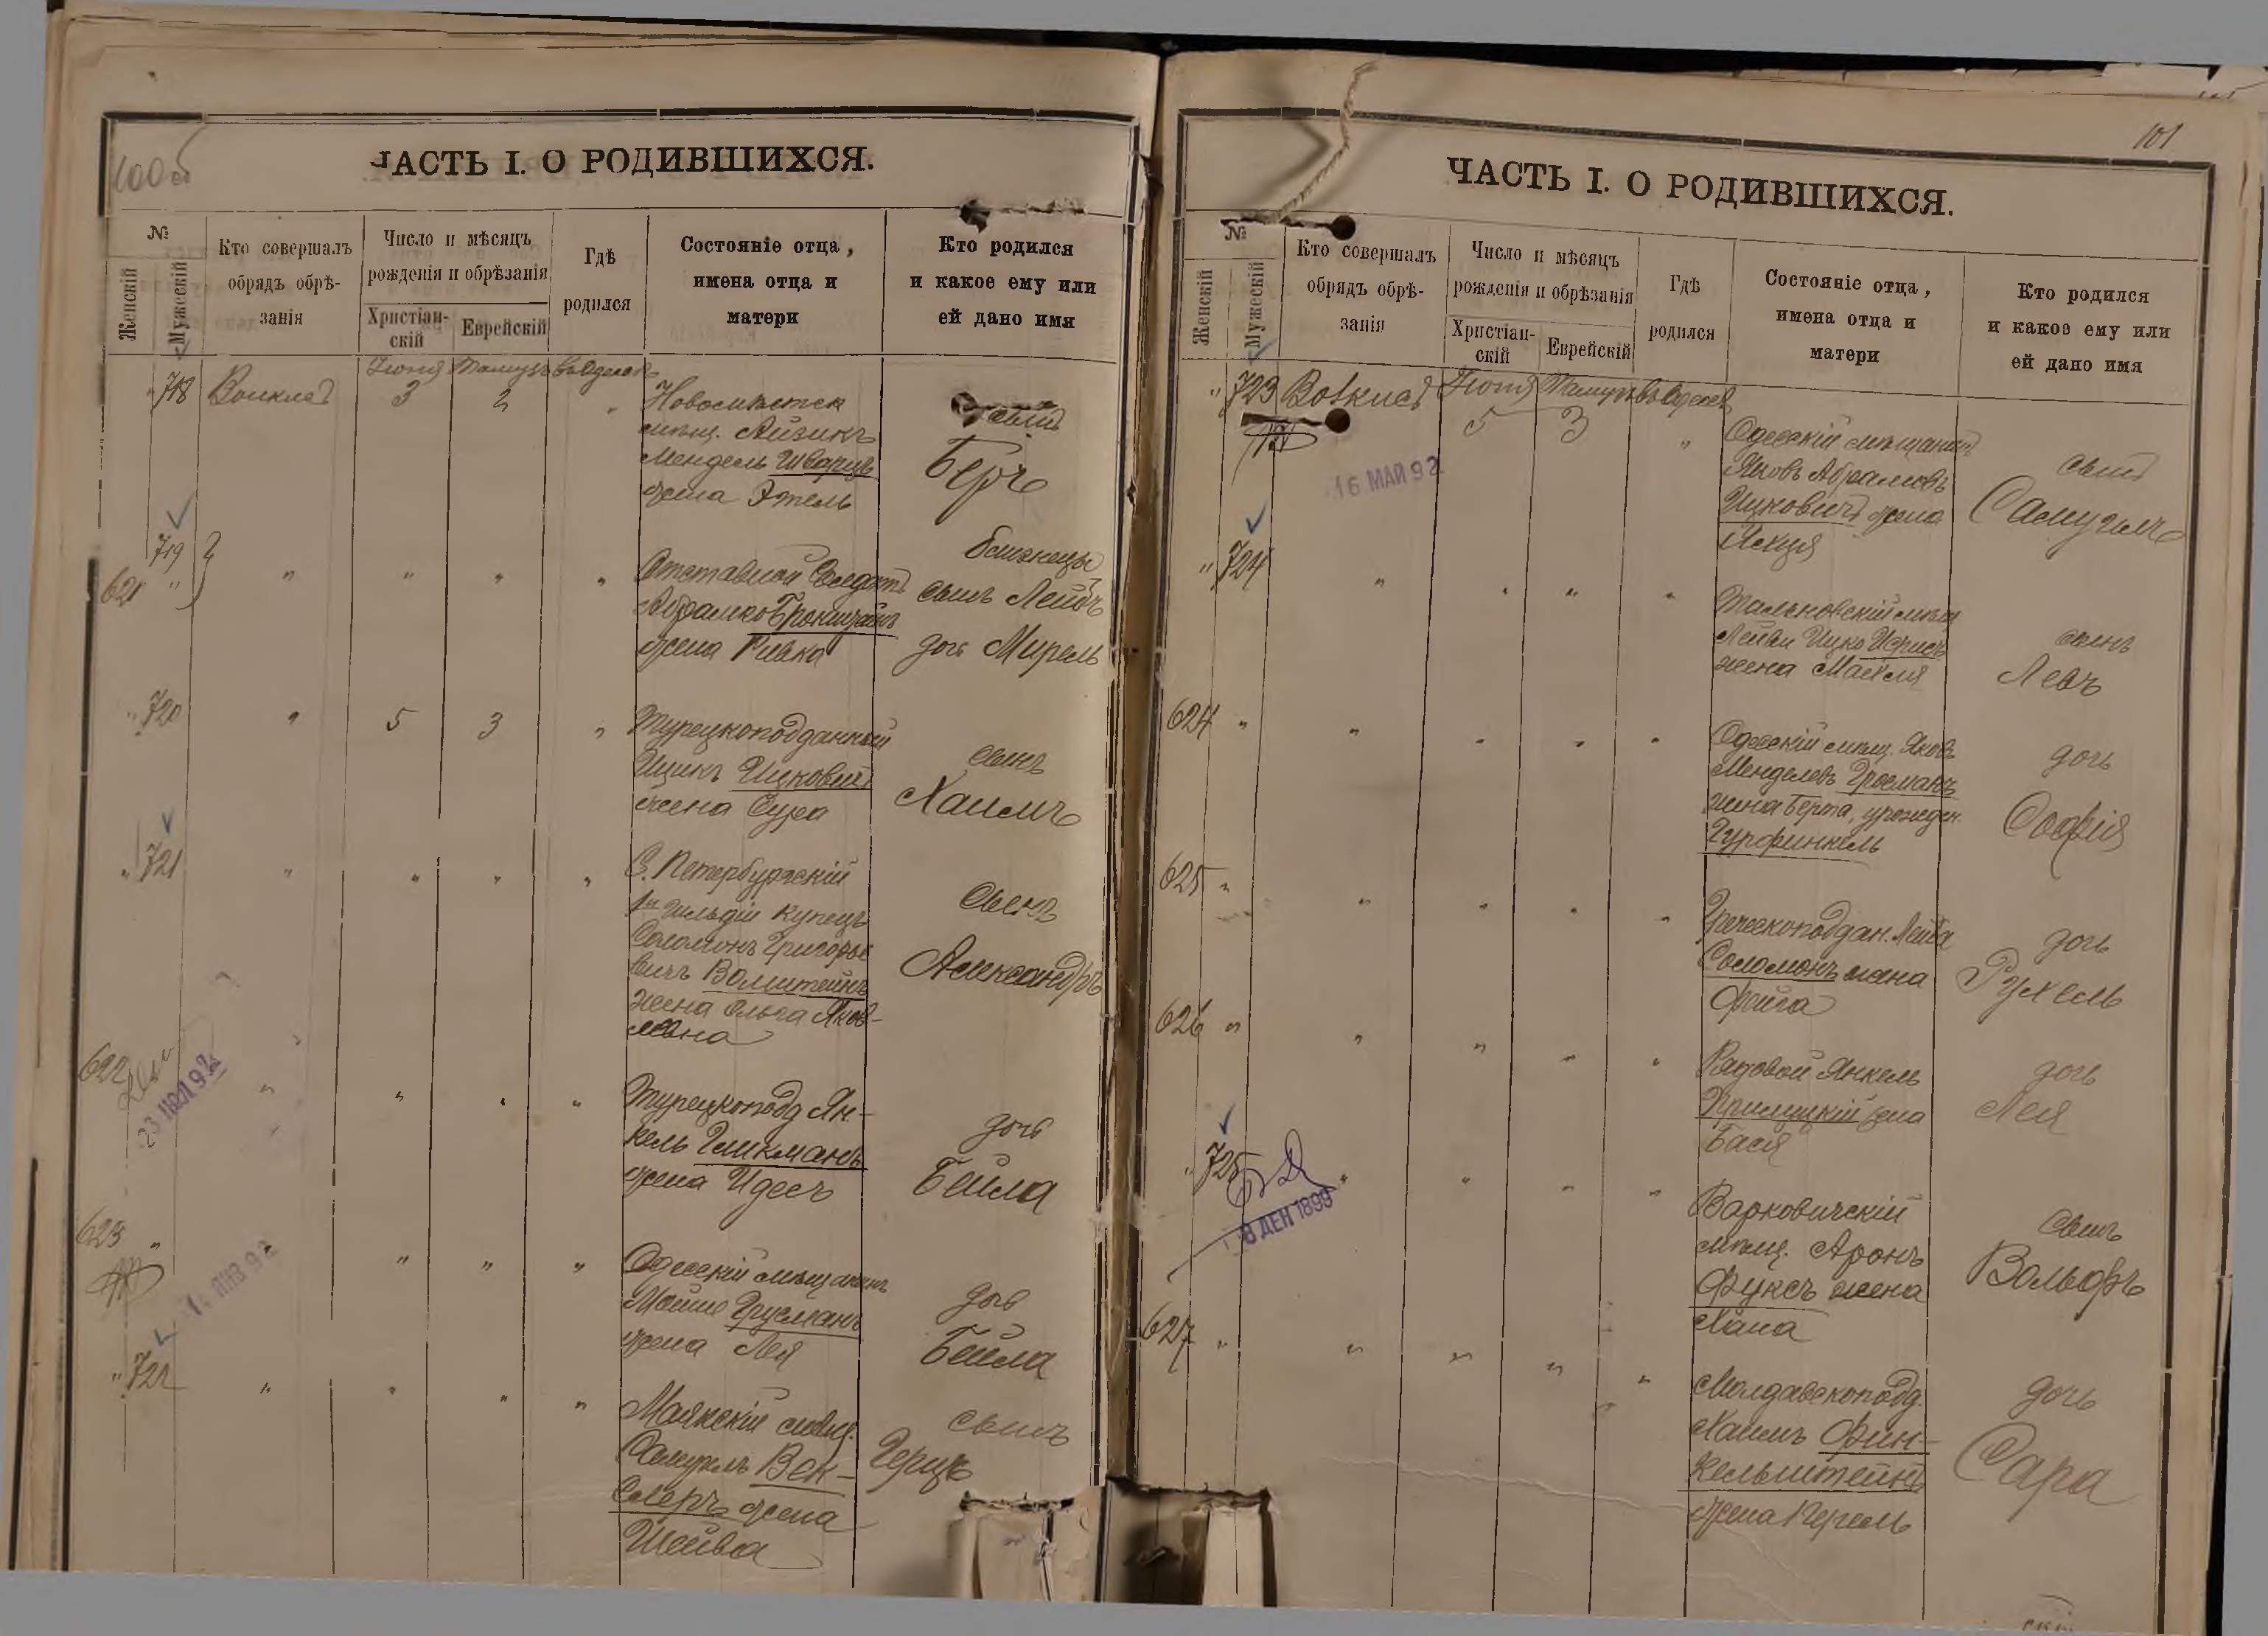 100 об
ЧАСТЬ I. О РОДИВШИХСЯ.
№
Женскій
Мужескій
Кто совершалъ
обрядъ обрѣ-
занія
Число и мѣсяцъ
рожденія и обрѣзанія
Христіан-
скій
Еврейскій
Гдѣ
родился
Состояніе отца,
имена отца и
матери
Кто родился
и какое ему или
ей дано имя
Іюня Тамузъ въ Одессѣ
" 718 3 2 "
Новосилетск
мѣщ. Айзикъ
Мендель Шварцъ
жена Этель
сынъ
Беръ
719 "
621 " " " "
Отставной Солдатъ
жена Ривка
близнецы
сынъ Лейбъ
дочь Мирель
" 720 " 5 3 "
Турецкоподданный
Ицикъ Ицковичъ
жена Сура
сынъ
Хаимъ
" 721 " " " "
С. Петербургскій
1й гильдіи купецъ
Соломонъ Григорье
вичъ Вольштейнъ
жена Ольга Яков-
левна
сынъ
Александръ
622 " " " "
23 ИЮЛ 92
Турецкопод Ян-
кель Гликманъ
жена Идесъ
дочь
Бейла
623 " " " "
ЯНВ 92
Одесскій мѣщанинъ
Мошко Грусманъ
жена Лея
дочь
Бейла
" 722 " " " "
Маякскій мѣщ.
Самуилъ Век-
слеръ жена
Шейва
сынъ
Герцъ
101
ЧАСТЬ I. О РОДИВШИХСЯ.
№
Женскій
Мужескій
Кто совершалъ
обрядъ обрѣ-
занія
Число и мѣсяцъ
рожденія и обрѣзанія
Христіан-
скій
Еврейскій
Гдѣ
родился
Состояніе отца,
имена отца и
матери
Кто родился
и какое ему или
ей дано имя
Іюня Тамузъ въ Одессѣ
" 723 5 3 "
16 МАЙ 92
Одесскій мѣщанинъ
Яковъ Абрамовъ
Ицковичъ жена
сынъ
Самуилъ
" 724 " " " "
Тальновскій мѣщ
жена Маня
сынъ
Левъ
624 " " " " "
Одесскій мѣщ. Яковъ
Менделевъ Гросманъ
жена Берта, урожден.
Гурфинкель
дочь
Софія
625 " " " " "
Греческоподдан. Лейба
Соломонъ жена
Фейга
дочь
Рухель
626 " " " " "
Рядовой Янкель
Прилуцкій жена
Бася
дочь
Лея
" 725 " " " "
8 ДЕН 1899
Варковичскій
мѣщ. Аронъ
Фуксъ жена
Хана
сынъ
Вольфъ
627 " " " " "
Молдавскоподд.
Хаимъ Фин-
кельштейнъ
жена Перель
дочь
Сара